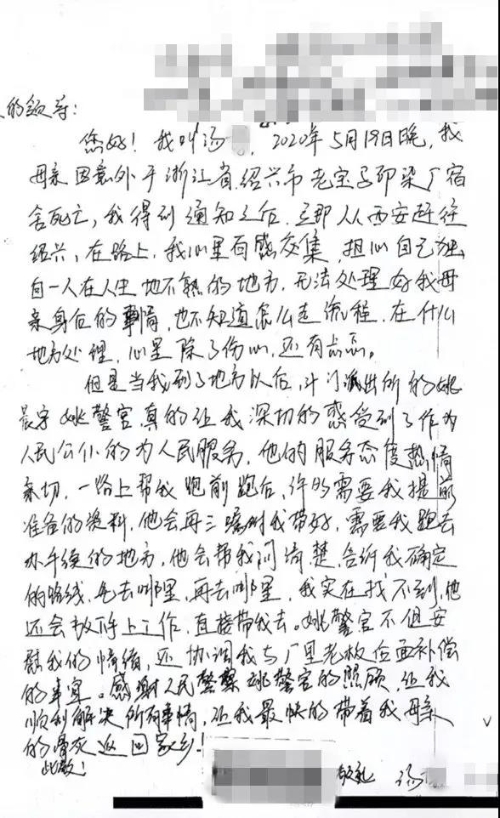 的领导:
您好！我叫汤 ，2020年5月19日晚，我
母亲因意外于浙江省绍兴市老宝子印染厂宿
舍死亡，我得到通知之后立即从西安赶往
绍兴，在路上，我心里百感交集，担心自己独
自一人在人生地不熟的地方，无法处理好我母
亲身后的事情，也不知道怎么走流程，在什么
地方处理，心里除了伤心，还有忐忑。
但是当我到了地方以后，斗门派出所的姚
晨宇姚警官真的让我深切的感受到了作为
人民公仆的为人民服务，他的服务态度热情
亲切，一路上帮我跑前跑后，许多需要我提前
准备的资料，他会再三嘱咐我带好，需要我跑去
办手续的地方，他会帮我问清楚，告诉我确定
的路线，先去哪里，再去哪里，我实在找不到，他
还会放下手上工作，直接带我去。姚警官不但安
慰我的情绪，还协调我与厂里老板后面补偿
的事宜。感谢人民警察姚警官的照顾，让我
顺利解决所有事情，让我最快的带着我母亲
的骨灰返回家乡！
此致！ 敬礼 汤